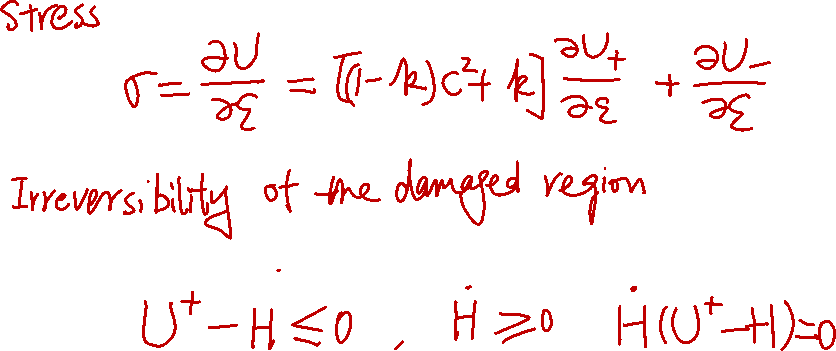 Stress
σ = ∂U/∂ε = [(1-k)c²+k] ∂U₊/∂ε + ∂U₋/∂ε
Irreversibility of the damaged region
U⁺-H ≤ 0 , Ḣ ≥ 0 Ḣ(U⁺-H)=0